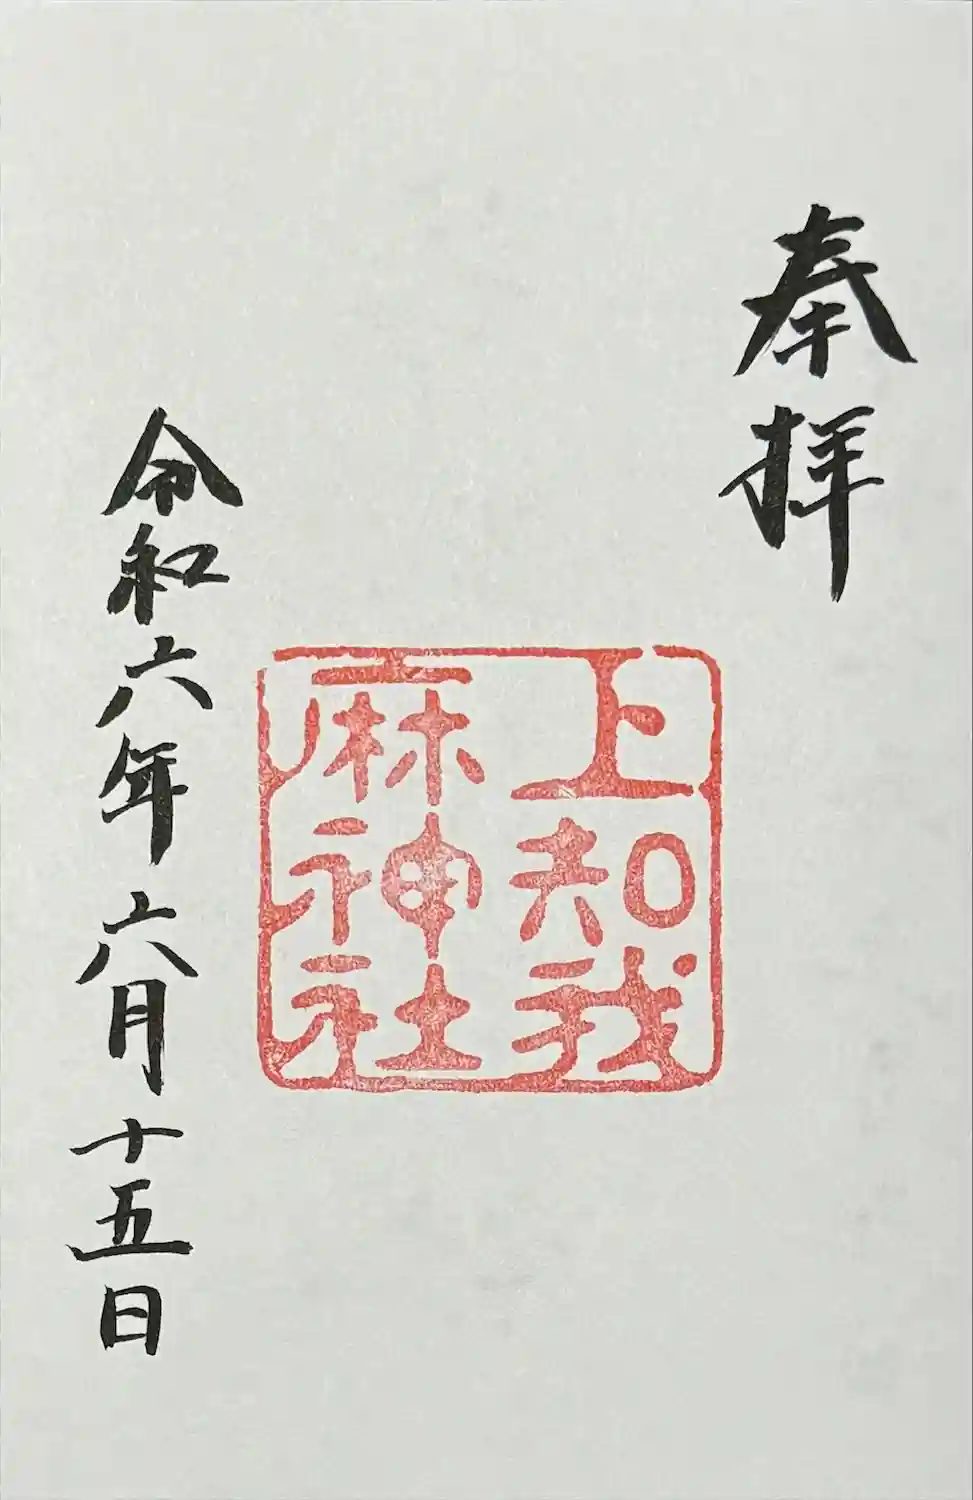 奉拝
上知我
麻神社
令和六年六月十五日